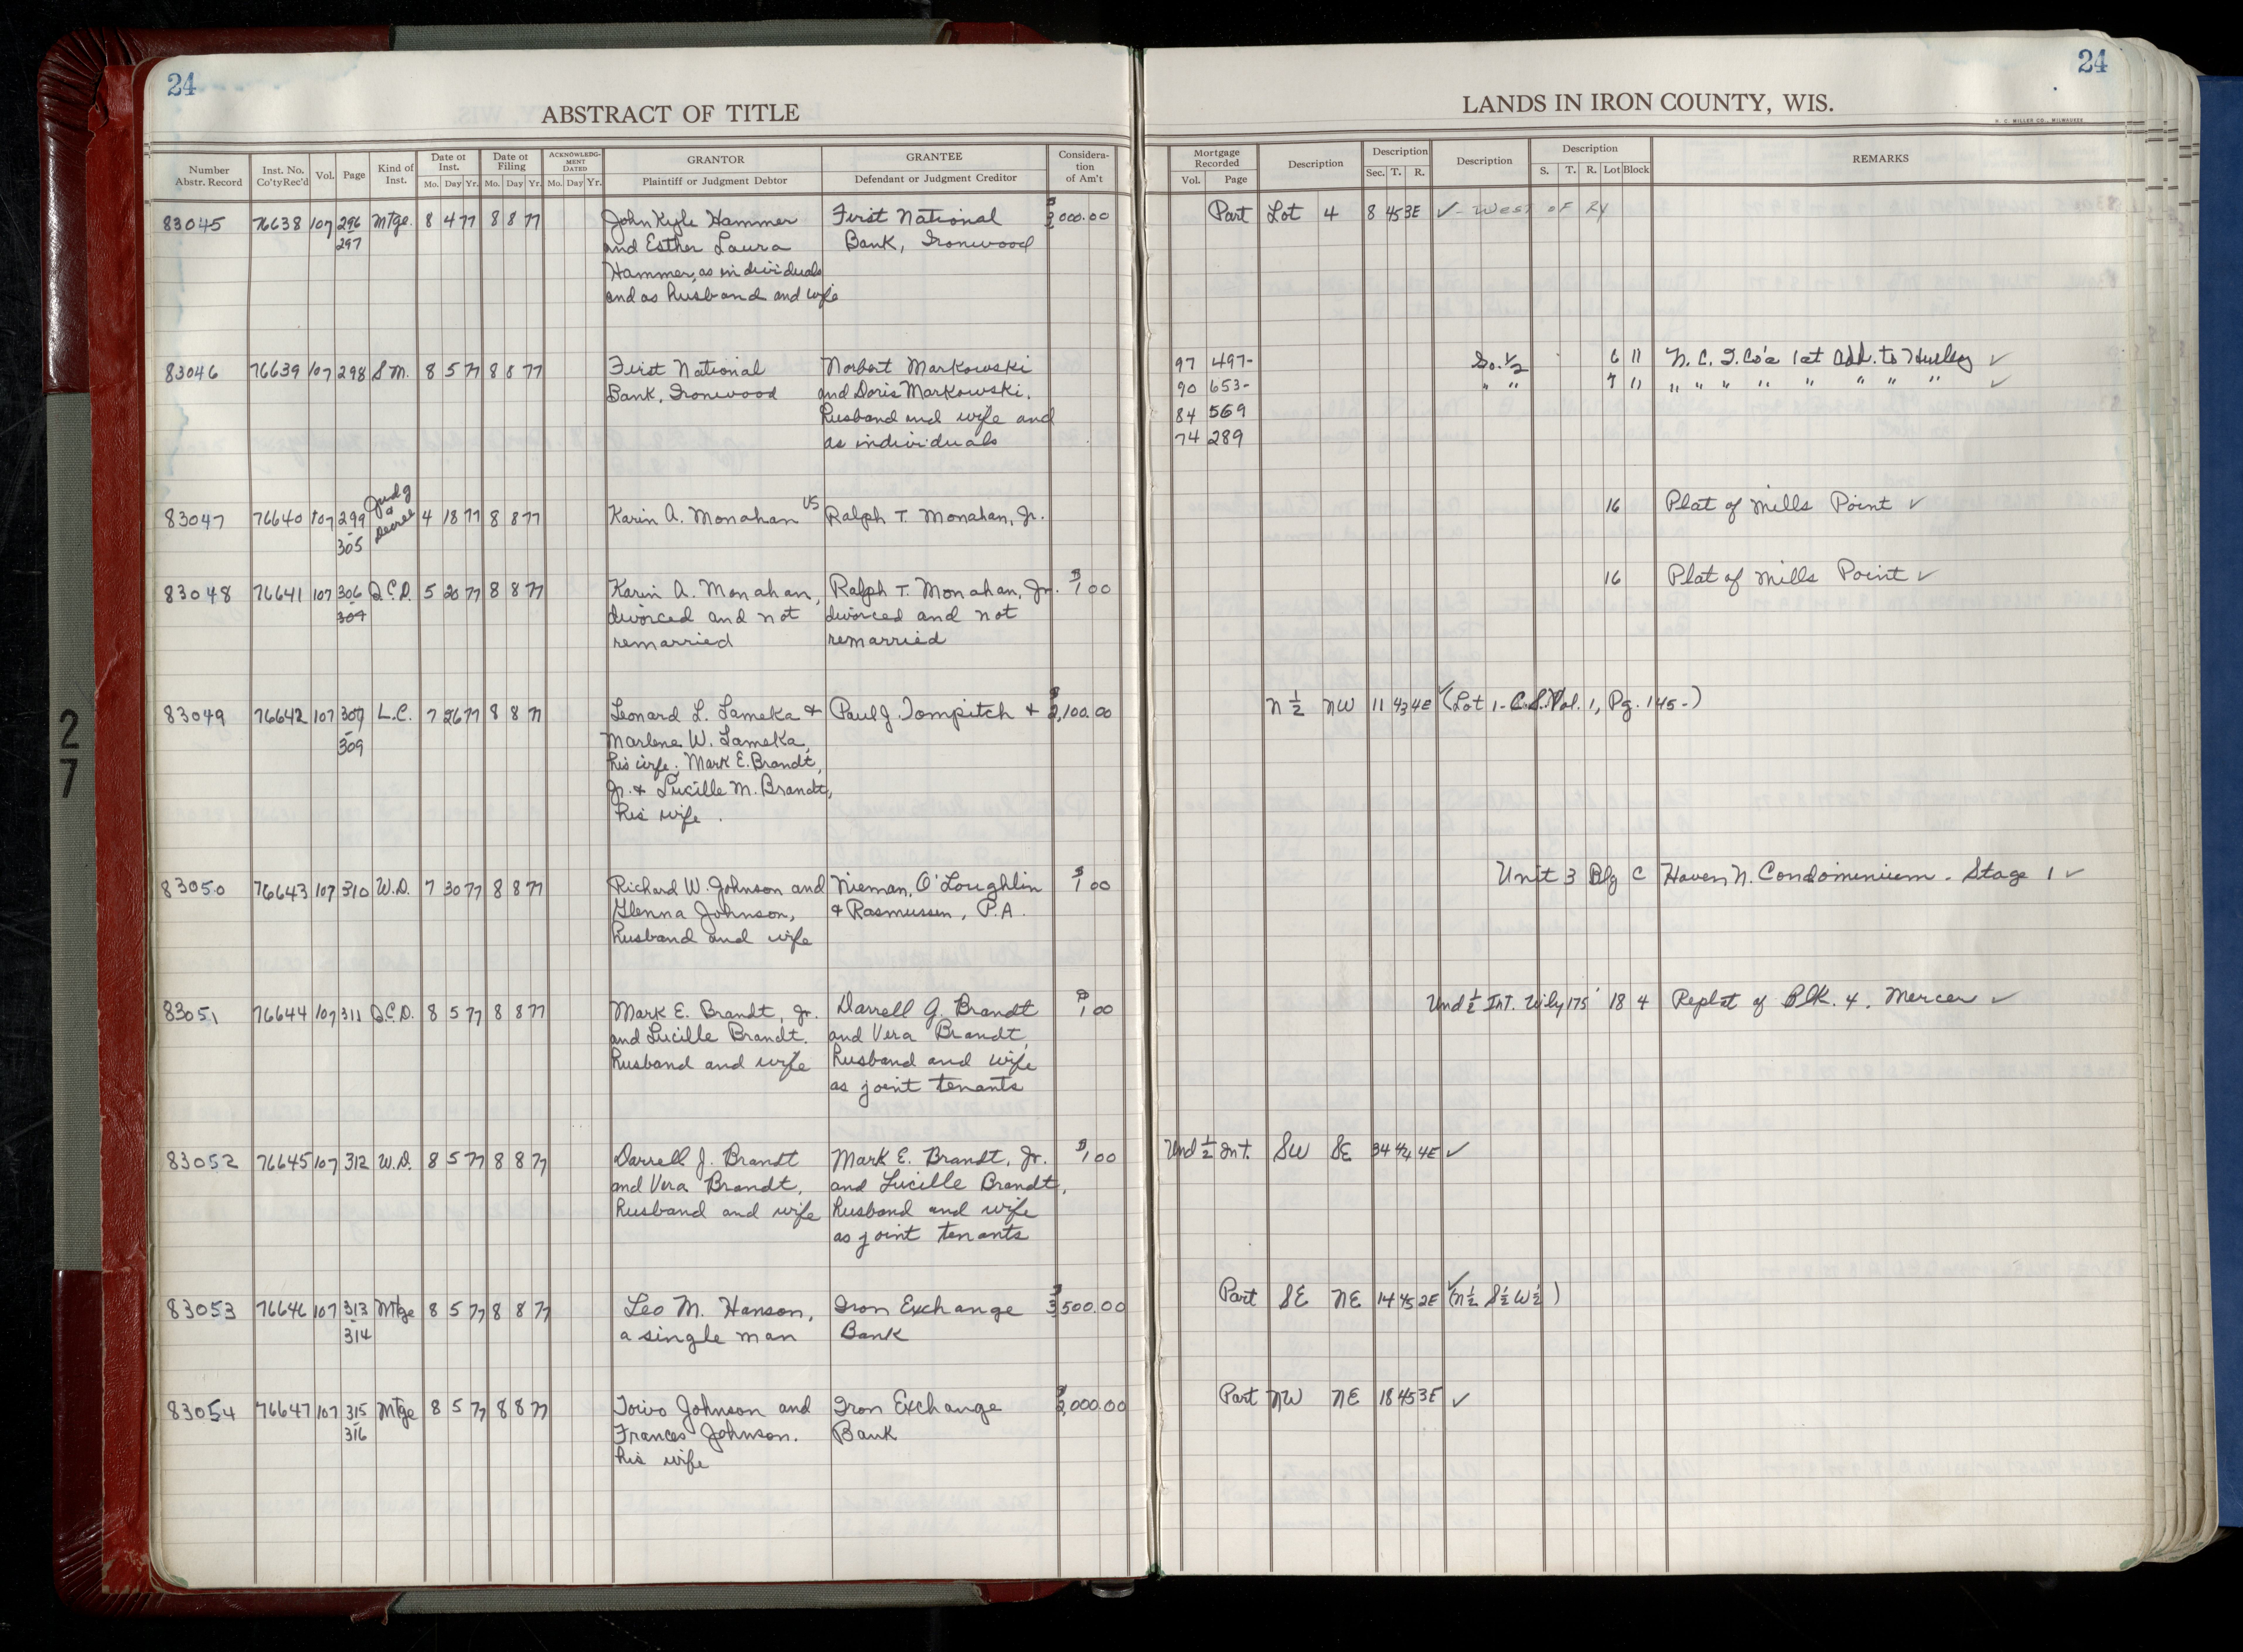 24
24
ABSTRACT OF TITLE
LANDS IN IRON COUNTY, WIS.
H. C. MILLER CO., MILWAUKEE
Number Abstr. Record Inst. No. Co'ty Rec'd Vol. Page Kind of Inst. Date of Inst. Mo. Day Yr. Date of Filing Mo. Day Yr. ACKNOWLEDGMENT DATED Mo. Day Yr. GRANTOR Plaintiff or Judgment Debtor GRANTEE Defendant or Judgment Creditor Consideration of Am't
Mortgage Recorded Vol. Page Description Description Sec. T. R. Description Description S. T. R. Lot Block REMARKS
83045 76638 107 296 Mtge. 8 4 77 8 8 77 John Kyle Hammer First National $ 000.00 Part Lot 4 8 45 3E ✓ - West of RY
297 and Esther Laura Bank, Ironwood
Hammer, as individuals
and as husband and wife
83046 76639 107 298 S.M. 8 5 77 8 8 77 First National Norbert Markowski 97 497- So. 1/2 6 11 N. C. I. Co's 1st Add. to Hurley ✓
Bank, Ironwood and Doris Markowski, 90 653- " " 7 11 " " " " " " " " ✓
husband and wife and 84 569
as individuals 74 289
83047 76640 107 299 - 305 Judg & Decree 4 18 77 8 8 77 Karin A. Monahan vs Ralph T. Monahan, Jr. 16 Plat of Mills Point ✓
83048 76641 107 306 Q.C.D. 5 20 77 8 8 77 Karin A. Monahan, Ralph T. Monahan, Jr. $1 00 16 Plat of Mills Point ✓
divorced and not divorced and not
remarried remarried
83049 76642 107 307 - 309 L.C. 7 26 77 8 8 77 Leonard L. Lameka & Paul J. Tompitch & $2,100.00 N 1/2 NW 11 43 4E ✓ (Lot 1 - C.S. Vol. 1, Pg. 145-)
Marlene W. Lameka,
his wife; Mark E. Brandt,
Jr. & Lucille M. Brandt,
his wife.
83050 76643 107 310 W.D. 7 30 77 8 8 77 Richard W. Johnson and Nieman, O'Loughlin $1 00 Unit 3 Blg C Haven N. Condominium - Stage 1 ✓
Glenna Johnson, & Rasmussen, P.A.
husband and wife
83051 76644 107 311 Q.C.D. 8 5 77 8 8 77 Mark E. Brandt, Jr. Darrell J. Brandt $1 00 Und 1/2 Int. Wily 175' 18 4 Replat of Blk. 4, Mercer ✓
and Lucille Brandt, and Vera Brandt,
husband and wife husband and wife
as joint tenants
83052 76645 107 312 W.D. 8 5 77 8 8 77 Darrell J. Brandt Mark E. Brandt, Jr. $1 00 Und 1/2 Int. SW SE 34 44 4E ✓
and Vera Brandt, and Lucille Brandt,
husband and wife husband and wife
as joint tenants
83053 76646 107 313 - 314 Mtge 8 5 77 8 8 77 Leo M. Hanson, Iron Exchange $3500.00 Part SE NE 14 45 2E ✓ (N 1/2 S 1/2 W 1/2)
a single man Bank
83054 76647 107 315 - 316 Mtge 8 5 77 8 8 77 Toivo Johnson and Iron Exchange $2,000.00 Part NW NE 18 45 3E ✓
Frances Johnson, Bank
his wife
27